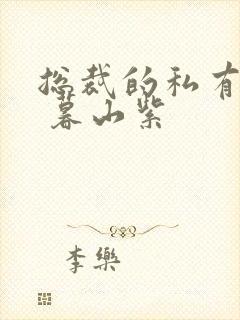 总裁的私有
暮山紫
李樂